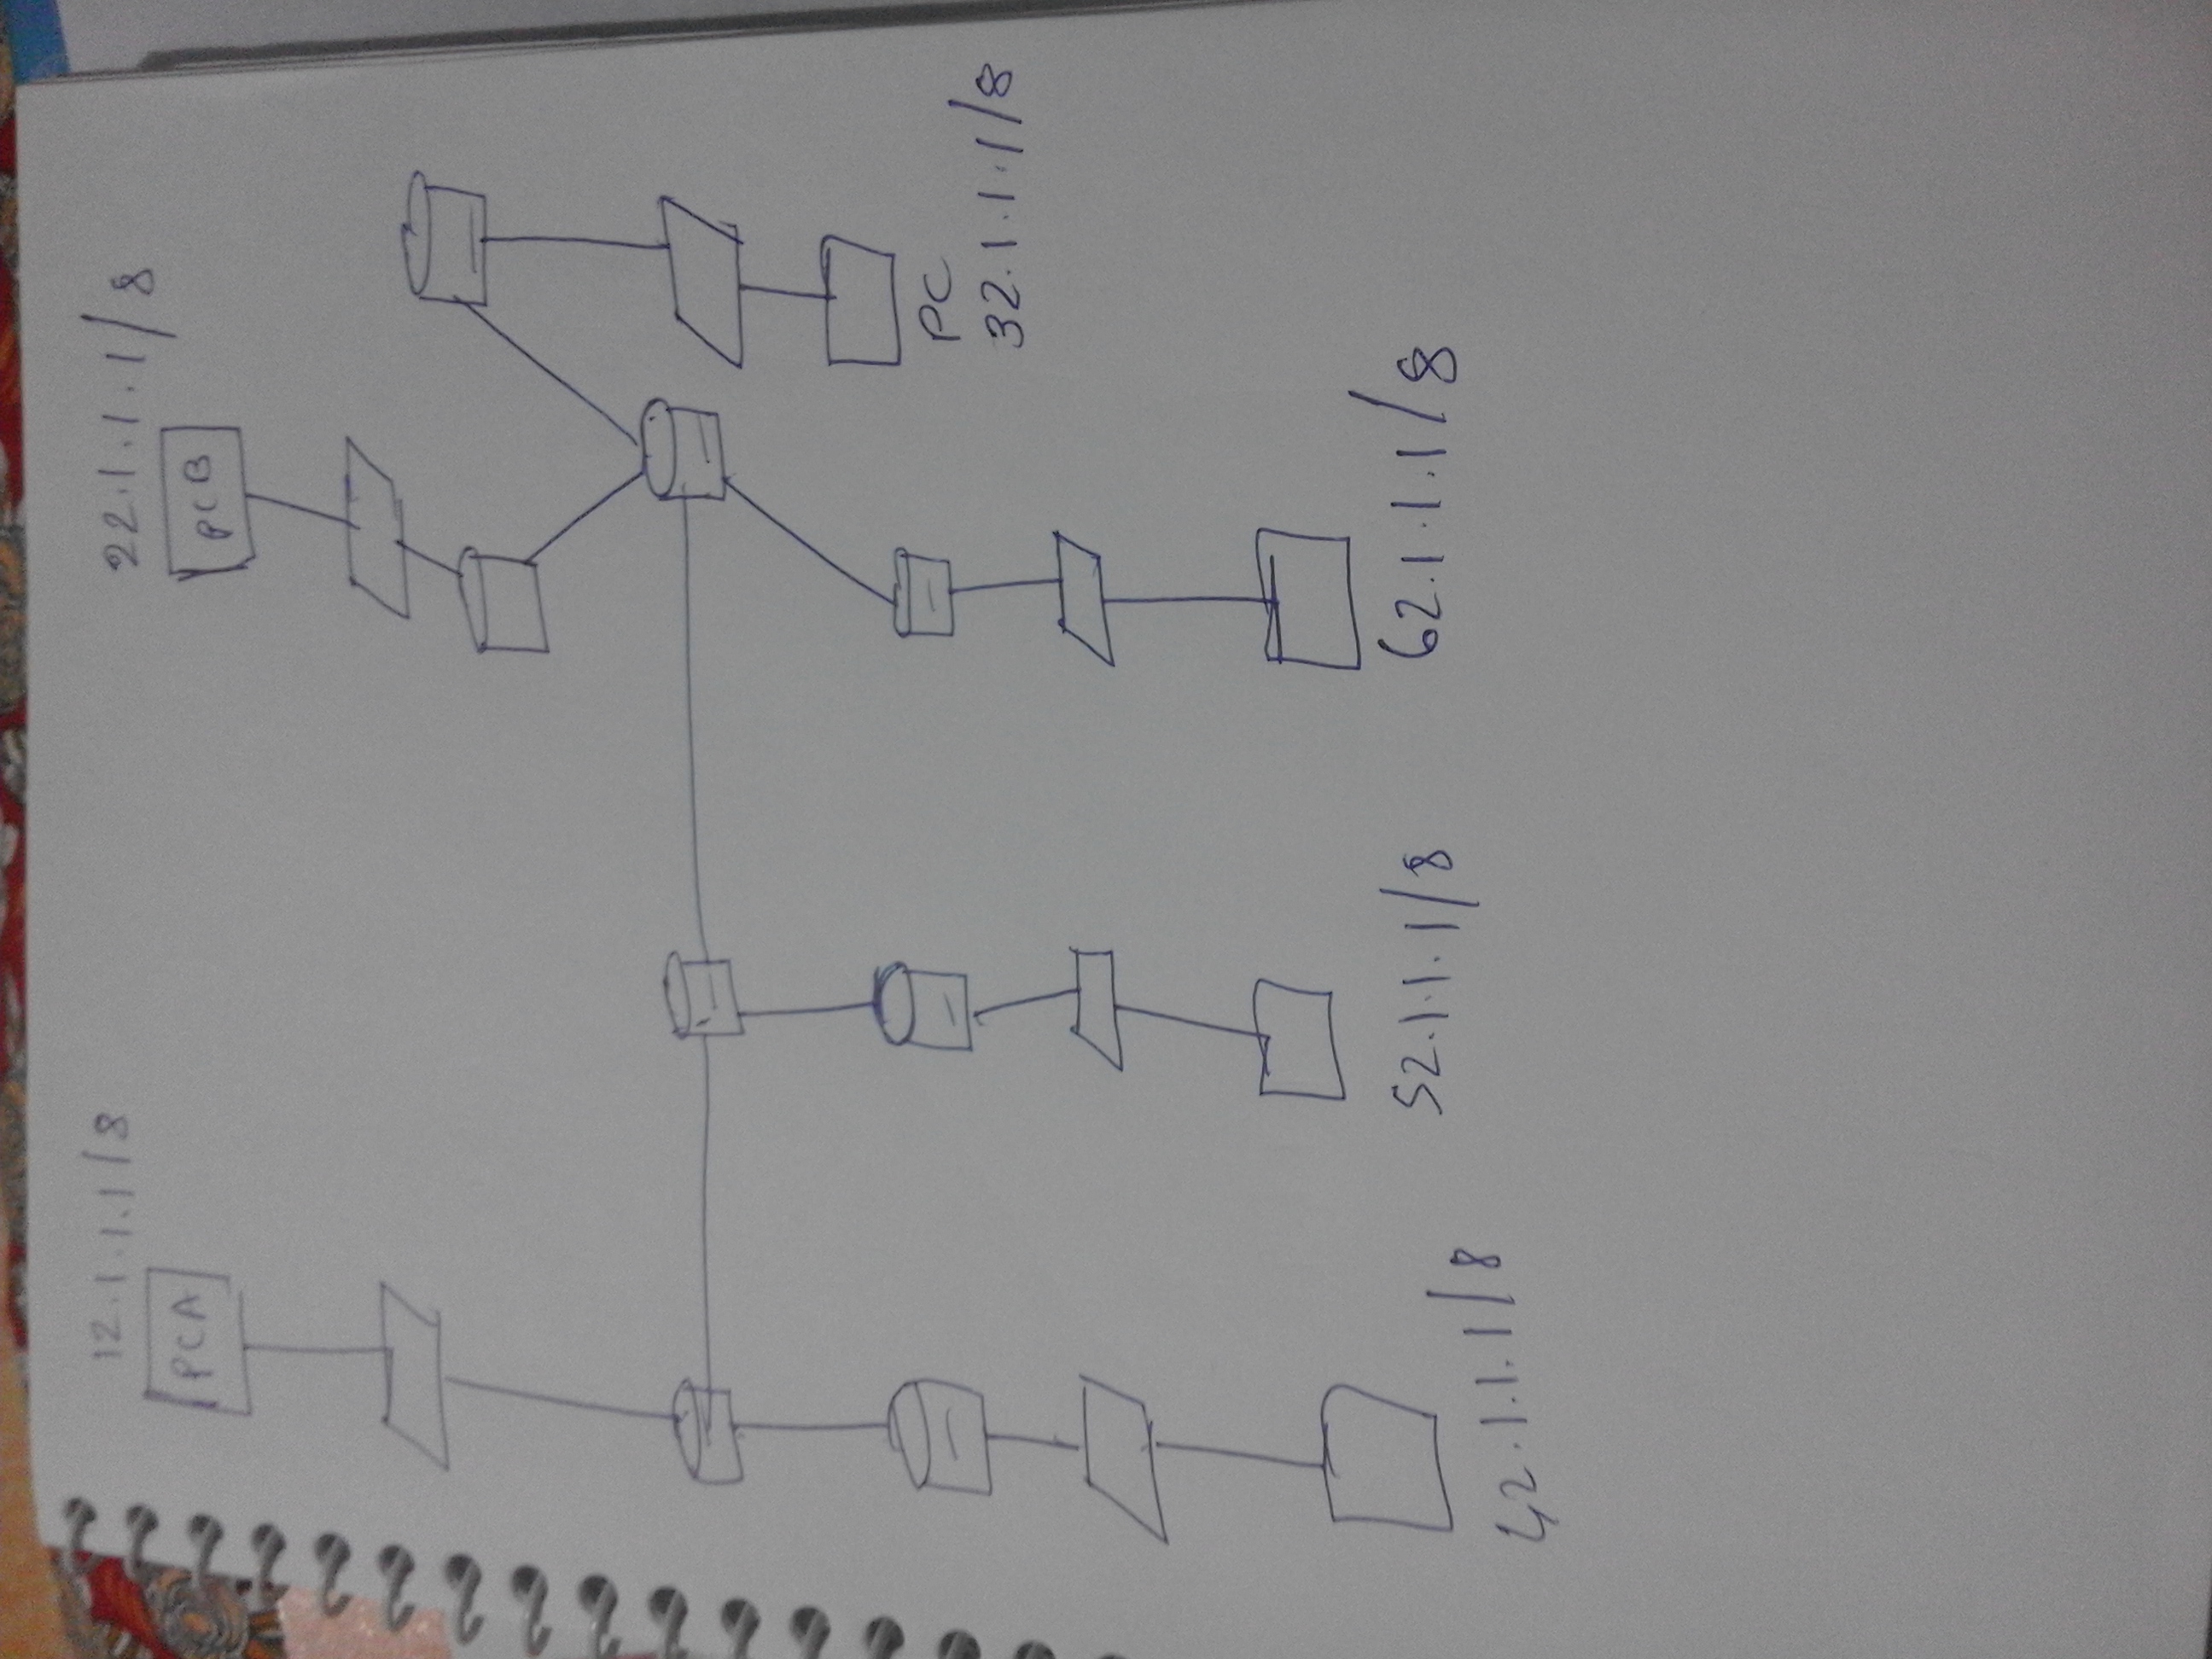 12.1.1.1/8
PCA
22.1.1.1/8
PCB
PC
32.1.1.1/8
42.1.1.1/8
52.1.1.1/8
62.1.1.1/8